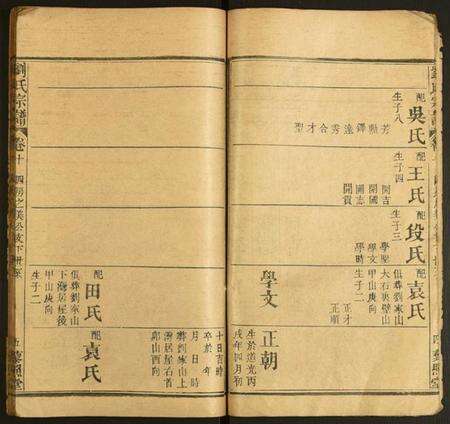 配
吳氏
生子八
芳
勲
鐸
遠
秀
合
才
聖
配
王氏
生子四
開吉
開國
開志
開貴
配
段氏
生子三
學聖
學文
學時
配
袁氏
俱葬劉家山
大石夾壁山
甲山庚向
生子二
正才
正順
正朝
生於道光丙
戌年四月初
學文
十日吉時
卒於 年
月 日 時
葬劉家山上
灣居屋右首
卯山酉向
配
袁氏
配
田氏
俱葬劉家山
下灣居屋後
甲山庚向
生子二
劉氏宗譜
卷十